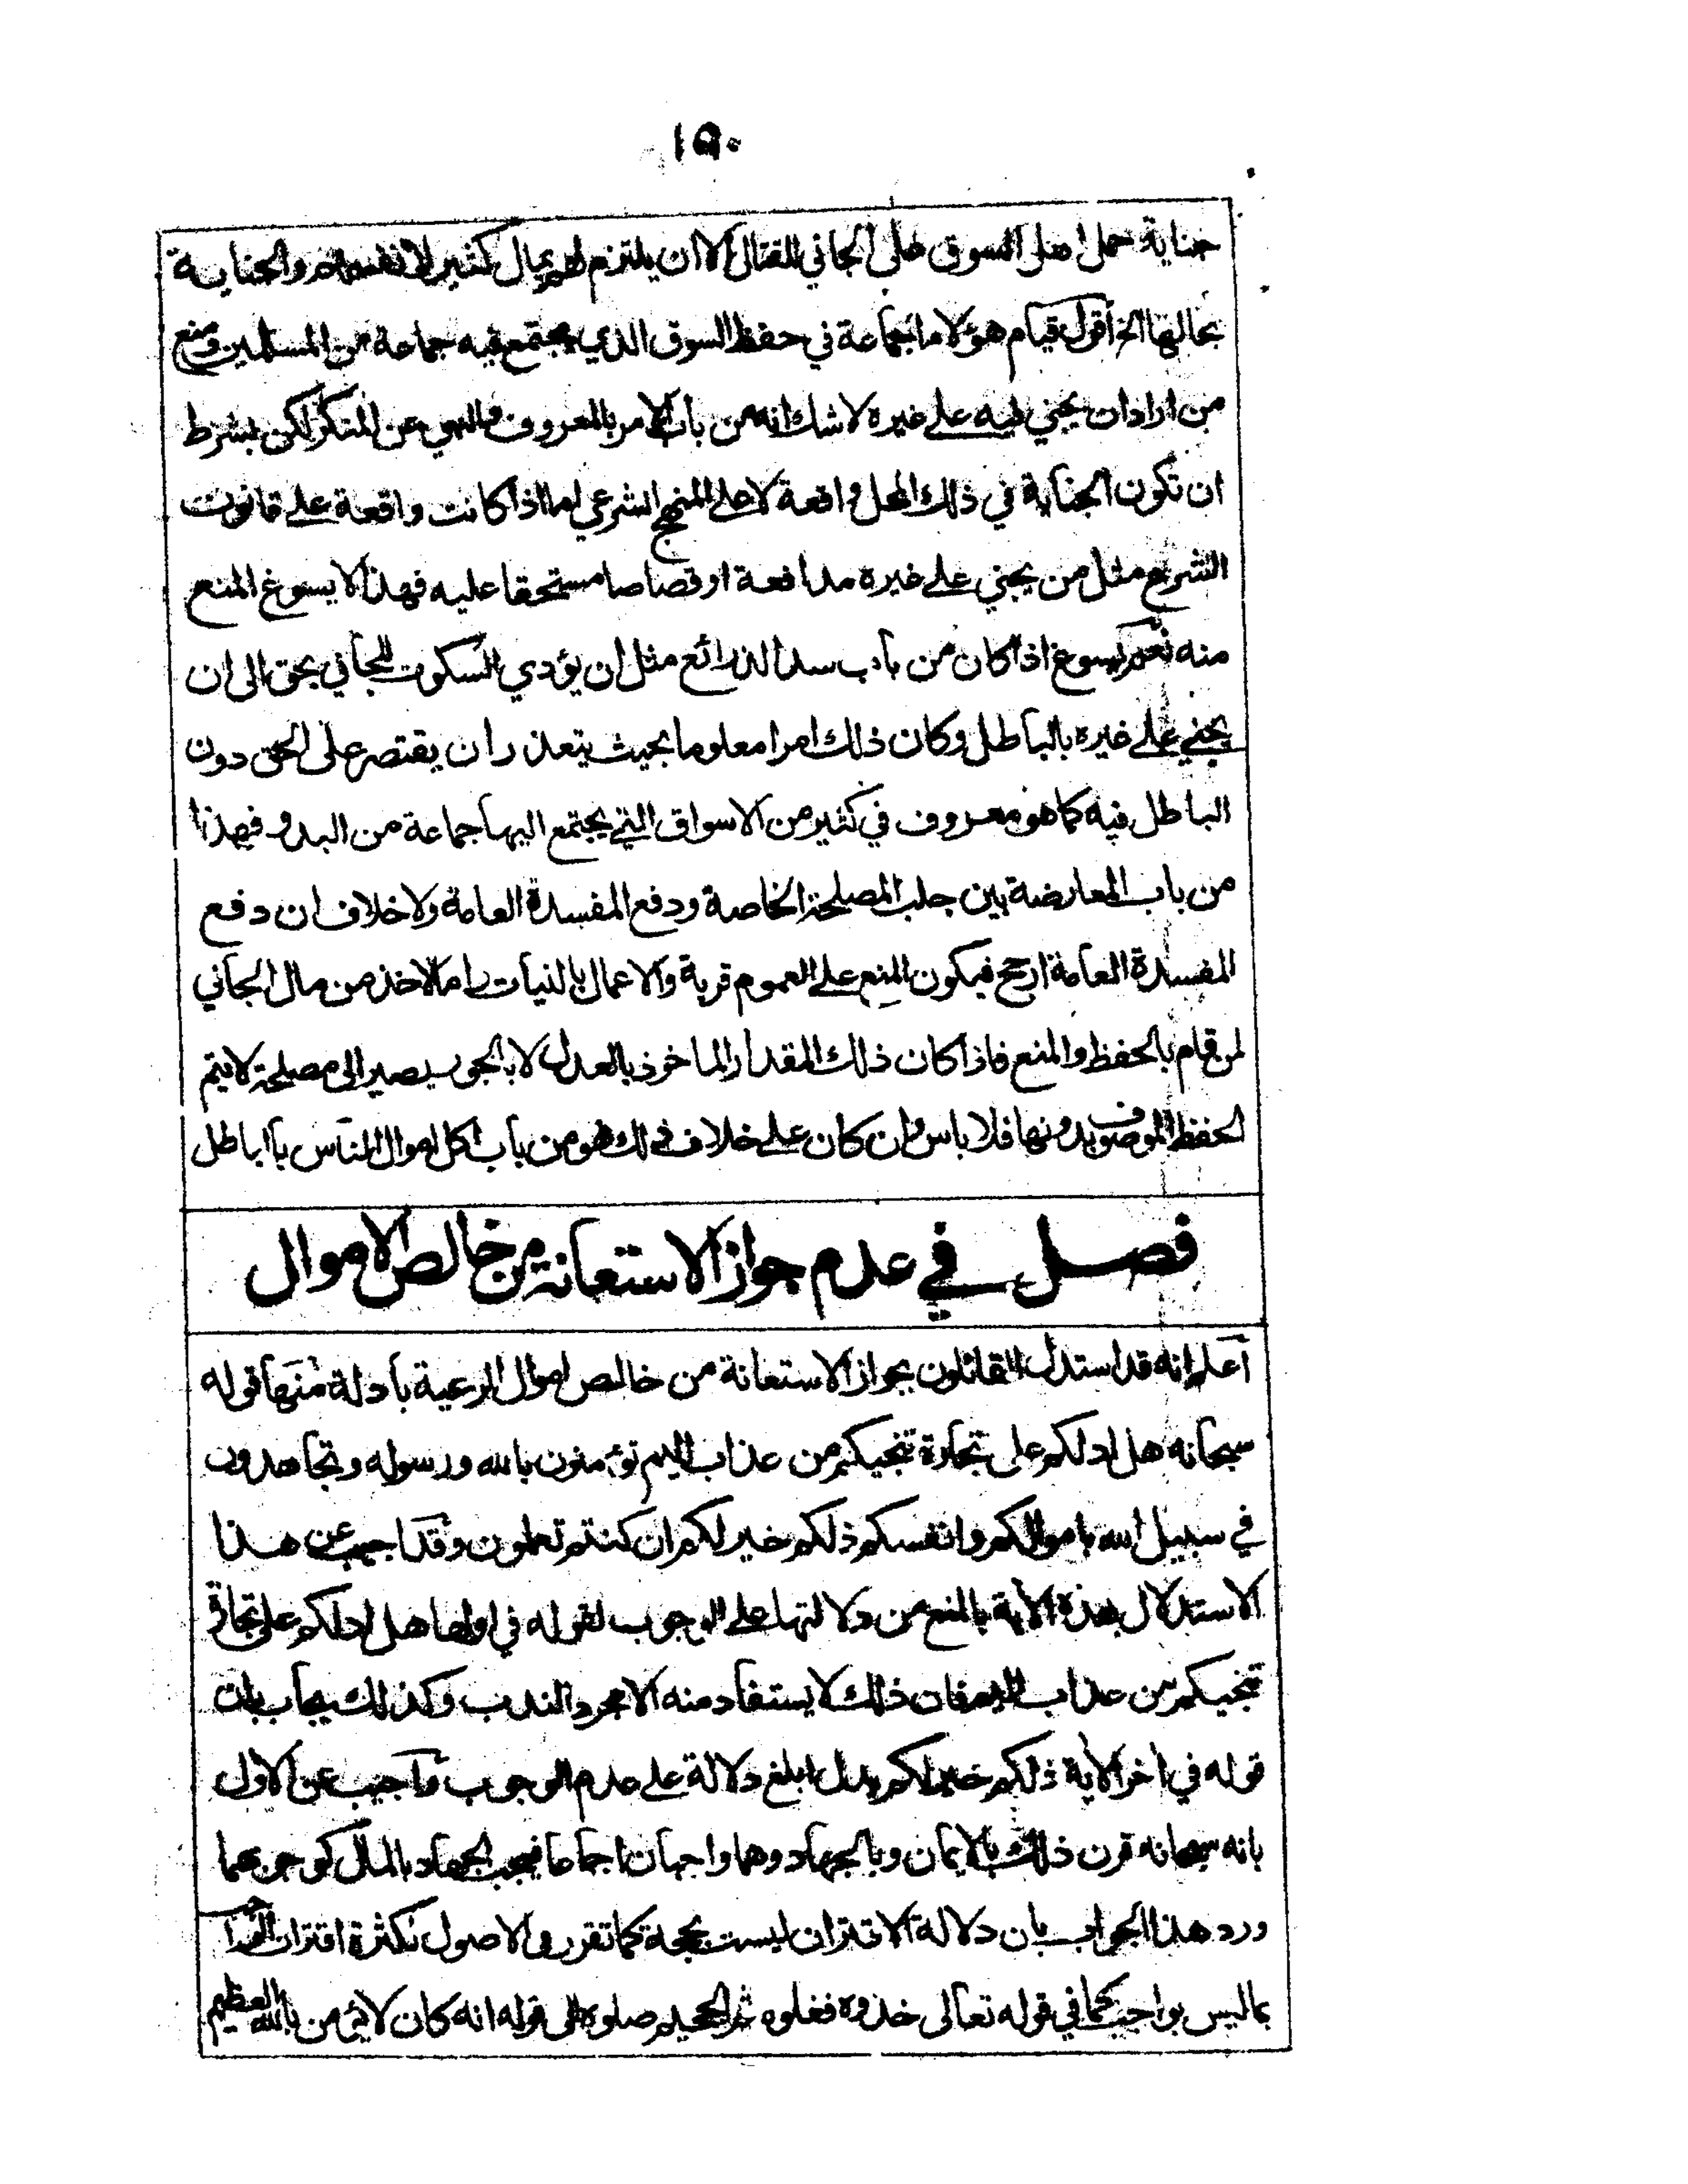 ١٥٠
جناية حمل اهل السوق على الجاني للقتال الا ان يلتزم لهم بمال كثير لانفسهم والجناية
بحالها الخ أقول قيام هؤلاء الجماعة في حفظ السوق الذي يجتمع فيه جماعة من المسلمين ومنع
من اراد ان يجني فيه على غيره لا شك انه من باب الامر بالمعروف والنهي عن المنكر لكن بشرط
ان تكون الجناية في ذلك المحل واقعة لا على المنهج الشرعي اما اذا كانت واقعة على قانون
الشرع مثل من يجني على غيره مدافعة او قصاصا مستحقا عليه فهذا لا يسوغ المنع
منه نعم يسوغ اذا كان من باب سد الذرائع مثل ان يؤدي السكوت للجاني بحق الى ان
يجني على غيره بالباطل وكان ذلك امرا معلوما بحيث يتعذر ان يقتصر على الحق دون
الباطل فيه كما هو معروف في كثير من الاسواق التي يجتمع اليها جماعة من البدو فهذا
من باب المعارضة بين جلب المصلحة الخاصة ودفع المفسدة العامة ولا خلاف ان دفع
المفسدة العامة ارجح فيكون المنع على العموم قربة والاعمال بالنيات واما الاخذ من مال الجاني
لمن قام بالحفظ والمنع فاذا كان ذلك المقدار الماخوذ بالعدل لا بالجور يصير الى مصلحة لا يتم
الحفظ الموصوف بدونها فلا باس وان كان على خلاف ذلك فهو من باب اكل اموال الناس بالباطل
فصل في عدم جواز الاستعانة من خالص الاموال
اعلم انه قد استدل القائلون بجواز الاستعانة من خالص اموال الرعية بادلة منها قوله
سبحانه هل ادلكم على تجارة تنجيكم من عذاب اليم تؤمنون بالله ورسوله وتجاهدون
في سبيل الله باموالكم وانفسكم ذلكم خير لكم ان كنتم تعلمون وقد اجيب عن هذا
الاستدلال بهذه الاية بالمنع من دلالتها على الوجوب لقوله في اولها هل ادلكم على تجارة
تنجيكم من عذاب اليم فان ذلك لا يستفاد منه الا مجرد الندب وكذلك يجاب بان
قوله في اخر الاية ذلكم خير لكم يدل ابلغ دلالة على عدم الوجوب واجيب عن الاول
بانه سبحانه قرن ذلك بالايمان وبالجهاد وهما واجبان اجماعا فيجب الجهاد بالمال كوجوبهما
ورد هذا الجواب بان دلالة الاقتران ليست بحجة كما تقرر في الاصول لكثرة اقتران
بما ليس بواجب كما في قوله تعالى خذوه فغلوه ثم الجحيم صلوه الى قوله انه كان لا يؤمن بالله العظيم